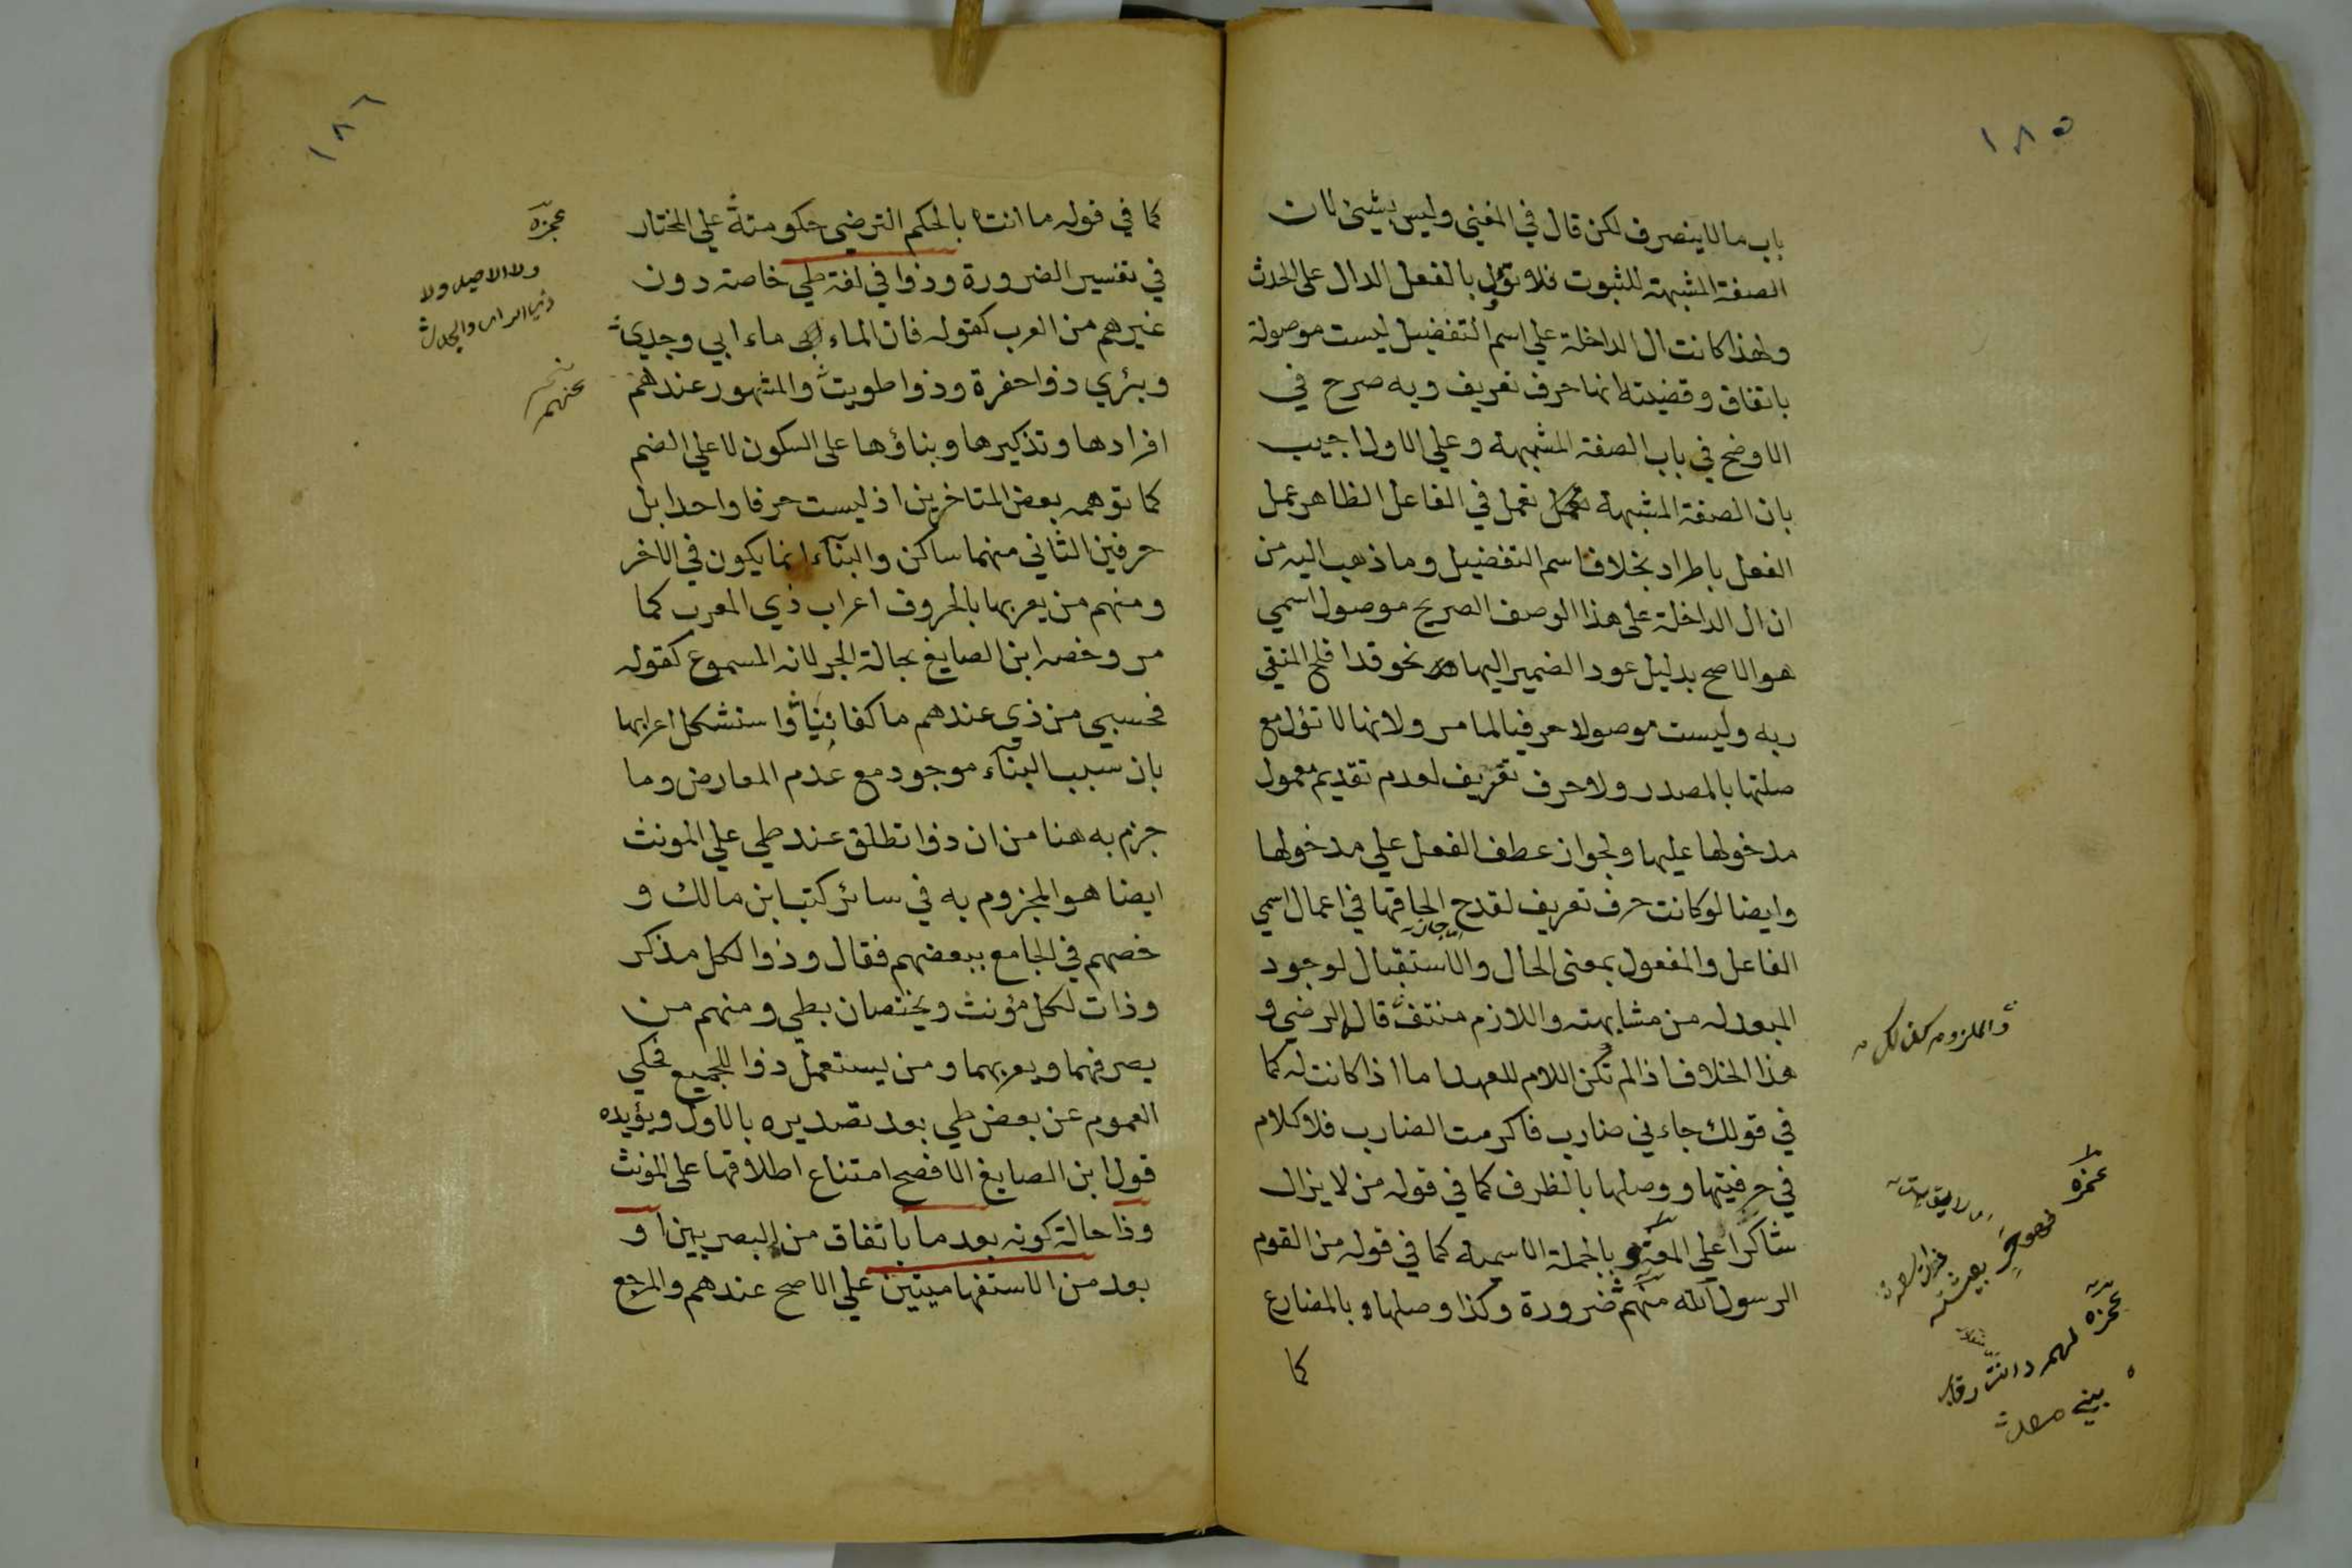 ١٨٥
باب ما لا ينصرف لكن قال في المغني وليس بشيئ لان
الصفة المشبهة للثبوت فلا تؤل بالفعل الدال على الحدث
ولهذا كانت ال الداخلة علي اسم التفضيل ليست موصولة
باتفاق وقضيته انها حرف تعريف وبه صرح في
الاوضح في باب الصفة المشبهة وعلي الاول اجيب
بان الصفة المشبهة تعمل في الفاعل الظاهر عمل
الفعل باطراد بخلاف اسم التفضيل وما ذهب اليه من
ان ال الداخلة على هذا الوصف الصريح موصول اسمي
هو الاصح بدليل عود الضمير اليها نحو قد افلح المتقي
ربه وليست موصولا حرفيا لما مر ولانها لا تؤل مع
صلتها بالمصدر ولا حرف تعريف لعدم تقديم معمول
مدخولها عليها ولجواز عطف الفعل علي مدخولها
وايضا لو كانت حرف تعريف لقدح الحاقها في اعمال اسمي
الفاعل والمفعول بمعنى الحال والاستقبال لوجود
المبعد له من مشابهته واللازم منتف قال الرضي و
هذا الخلاف اذا لم تكن اللام للعهد اما اذا كانت له كما
في قولك جاءني ضارب فاكرمت الضارب فلا كلام
في حرفيتها ووصلها بالظرف كما في قوله من لا يزال
شاكرا علي المعه وبالجملة الاسمية كما في قوله من القوم
الرسول الله منهم ضرورة وكذا وصلها بالمضارع
كما
والملزوم كذلك
عجزه
فهو حر بعيشة
ذات سعة
عجزه لهم دانت رقاب
بني معد
١٨٦
كما في قوله ما انت بالحكم الترضي حكومته علي المختار
في تفسير الضرورة وذوا في لغة طي خاصة دون
غيرهم من العرب كقوله فان الماء ماء ابي وجدي
وبئري ذوا حفرة وذوا طويت والمشهور عندهم
افرادها وتذكيرها وبناؤها على السكون لا علي الضم
كما توهمه بعض المتاخرين اذ ليست حرفا واحدا بل
حرفين الثاني منهما ساكن والبنآء انما يكون في الاخر
ومنهم من يعربها بالحروف اعراب ذي المعرب كما
مر وخصه ابن الصايغ بحالة الجر لانه المسموع كقوله
فحسبي من ذي عندهم ما كفانيا واستشكل اعرابها
بان سبب البنآء موجود مع عدم المعارض وما
جزم به هنا من ان ذوا تطلق عند طي علي المونث
ايضا هو المجزوم به في سائر كتب ابن مالك و
خصهم في الجامع ببعضهم فقال وذوا لكل مذكر
وذات لكل مؤنث ويختصان بطي ومنهم من
يصرفهما ويعربهما ومن يستعمل ذوا للجميع فحكي
العموم عن بعض طي بعد تصديره بالاول ويؤيده
قول ابن الصايغ الافصح امتناع اطلاقها على المؤنث
وذا حالة كونه بعد ما باتفاق من البصريين او
بعد من الاستفهاميتين علي الاصح عندهم والمرجع
عجزه
ولا الاصيل ولا
ذي الراي والجدل